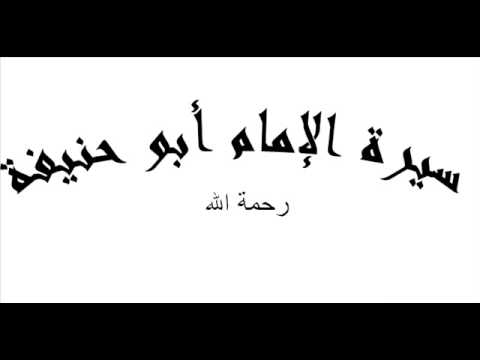 سيرة الإمام أبو حنيفة
رحمة الله